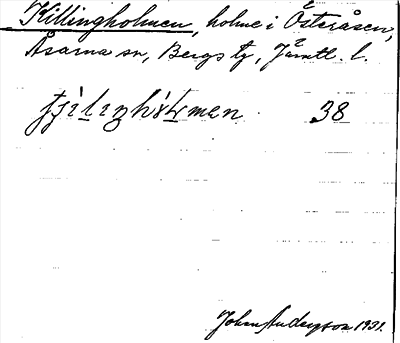 Killingholmen, holme i Österåsen,
Åsarna sn, Bergs tg, Jämtl. l.
38
Johan Anderzon 1931.